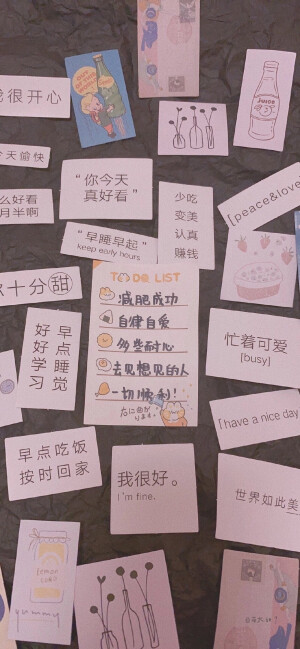 我很开心
今天愉快
JUICE
"你今天
真好看"
么好看
月半啊
少吃
变美
认真
赚钱
[peace&love]
"早睡早起"
keep early hours
十分甜
TO DO LIST
减肥成功
自律自爱
多些耐心
去见想见的人
一切顺利!
早点睡觉
好好学习
忙着可爱
[busy]
早点吃饭
按时回家
I have a nice day
我很好。
I'm fine.
世界如此美
lemon
yummy